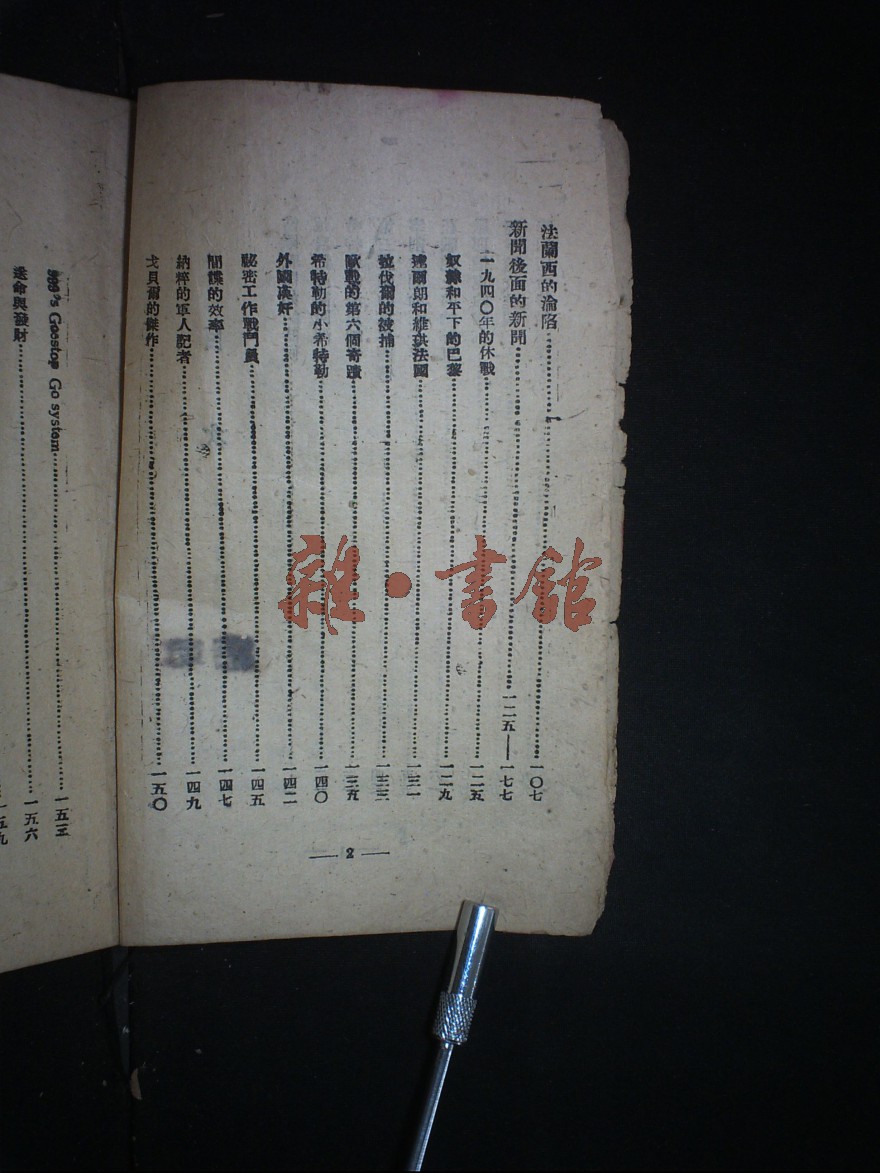 法蘭西的淪陷……一〇七
新聞後面的新聞……一二五——一七七
一九四〇年的休戰……一二五
奴隸和平下的巴黎……一二九
達爾朗和維琪法國……一三一
拉伐爾的被捕……一三三
歐戰的第六個奇蹟……一三五
希特勒的小希特勒……一四〇
外國漢奸……一四二
秘密工作戰鬥員……一四五
間諜的效率……一四七
納粹的軍人記者……一四九
戈貝爾的傑作……一五〇
— 2 —
Goostop Go system……一五三
送命與發財……一五六
一五九
雜·書館